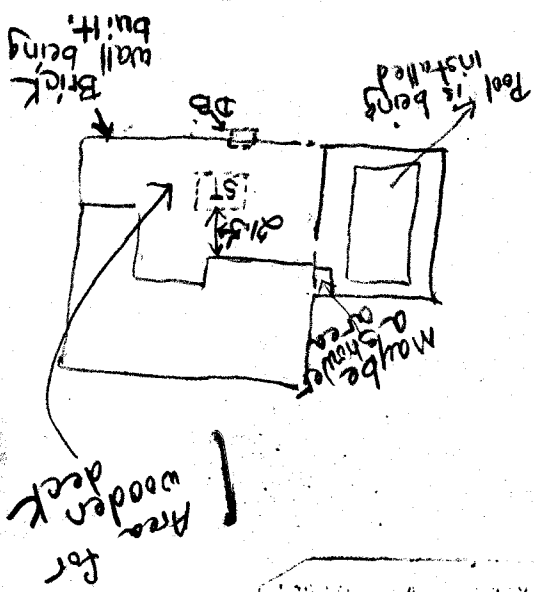 Area for
wooden
deck
Maybe
a
shower
area
ST
DB
Pool
is being
installed
Brick
wall being
built.